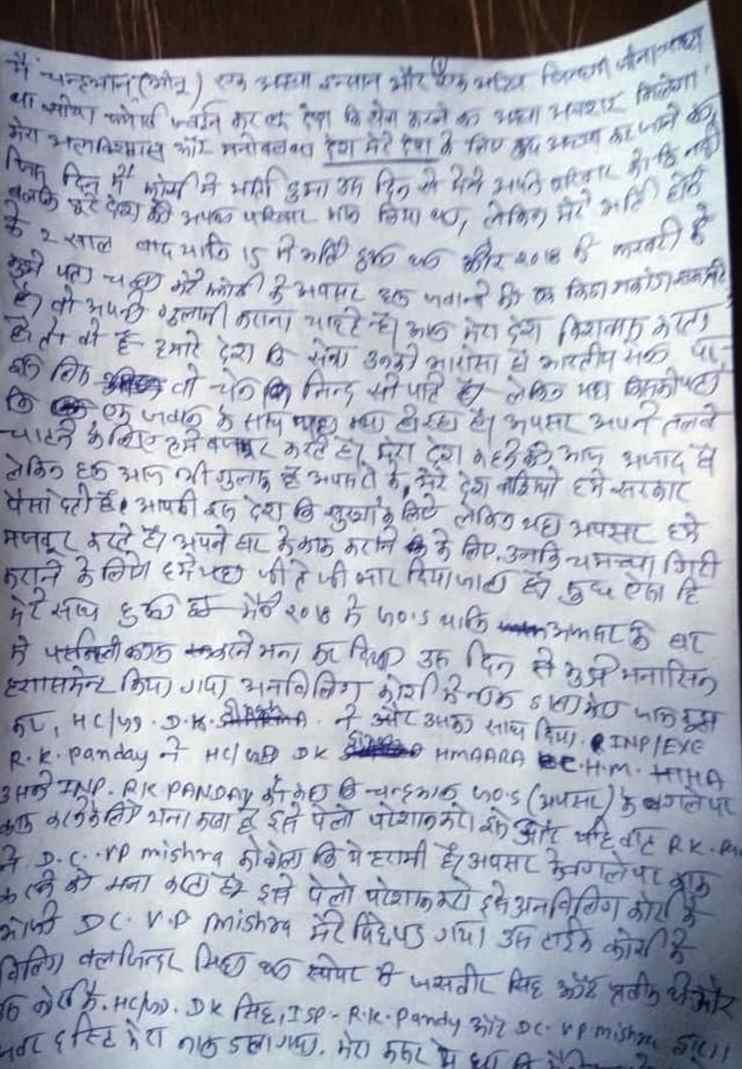 मैं चन्द्रभान (सोनू) एक अच्छा इन्सान और एक अच्छी जिन्दगी जीना चाहता
था सोचा फोर्स ज्वाईन कर के देश कि सेवा करने का अच्छा अवशर मिलेगा
मेरा आत्मविश्वास और मनोबल था देश मेरे देश के लिए कुछ अच्छा कर जाने की
जिस दिन मैं फोर्स में भर्ती हुआ उस दिन से मैंने अपने परिवार को कि नहीं
बल्कि पूरे देश को अपना परिवार मान लिया था, लेकिन मेरे भर्ती होने
के 2 साल बाद यानि 15 में भर्ती हुआ था और 2018 के फरवरी में
मुझे पता चला मेरे फोर्स के अपसर हम जवानों को
है। वो अपनी गुलामी कराना चाहते है। आज मेरा देश विश्वास करता
है तो वो है हमारे देश कि सेना उनको भरोसा है भारतीय सेना पर
कि वो चैन कि निन्द सो पाते है लेकिन यह किसको पता
कि एक जवान के साथ क्या हो रहा है। अपसर अपने तलवे
चाटने के लिए हमें मजबूर करते है। मेरा देश कहने को आज अजाद है
लेकिन हम आज भी गुलाम है अपसरो के, मेरे देश वासियो हमे सरकार
पैसा देती है। आपकी इस देश कि सुरक्षा के लिए लेकिन यह अपसर हमे
मजबूर करते है। अपने घर के काम कराने के लिए. उनकि चमच्चा गिरी
कराने के लिए हमें यहा जीते जी मार दिया जाता है। कुछ ऐसा हि
मेरे साथ हुआ है मैने 2018 में GO'S यानि अपसर के घर
मे पर्सनली काम करने मना कर दिया उस दिन से मुझे मानसिक
हरासमेन्ट किया गया अनविलिंग कोर्स में नाम डाला गया
HC/GD. D.K. ने और उसका साथ दिया. INP/EXE
R.K. Panday ने HC/GD DK HMAARA C.H.M. THA
उसने INP. R.K PANDAY को कहा कि चन्द्रभान GO'S (अपसर) के बंगले पर
काम करने के लिए मना करता है इसे पेलो परेशान करो इसे और यहि बात R.K.
ने D.C. V.P mishra को बोला कि ये हरामी है। अपसर के बंगले पर काम
करने को मना करता है इसे पेलो परेशान करो इसे अनविलिंग कोर्स में
भेजो DC. V.P Mishra मेरे पिछे पड़ गया। उस टाईम कोर्स में
विलिंग बलजिन्दर सिंह था स्पेयर में जसवीर सिंह और प्रवीन थे और
HC/GD. DK सिंह, ISP-R.K. Pandy और DC. V.P mishra द्वारा
मेरा नाम डाला गया. मेरा कसूर ये था कि मैंने